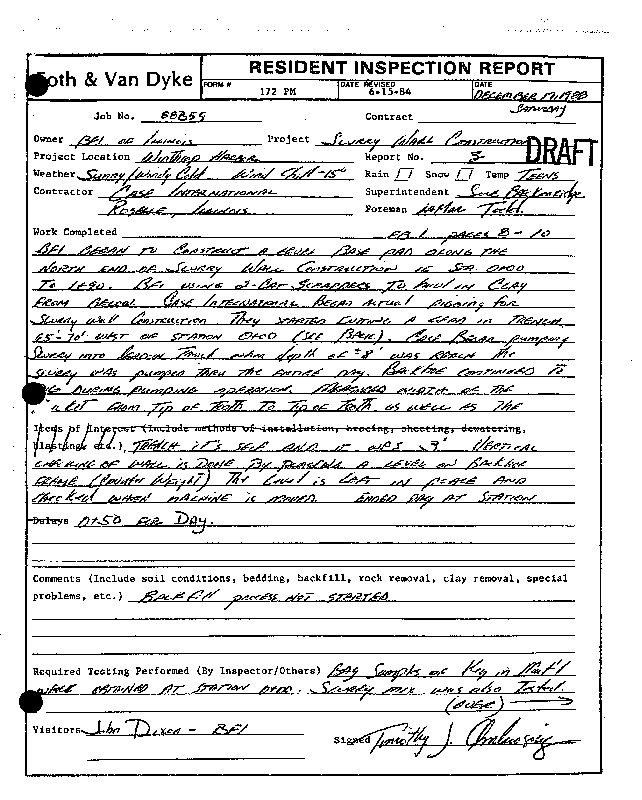 Foth & Van Dyke
RESIDENT INSPECTION REPORT
FORM # 172 PM DATE REVISED 6-15-84 DATE DECEMBER 17, 1988
SATURDAY
Job No. 88B55 Contract
Owner BFI OF ILLINOIS Project SLURRY WALL CONSTRUCTION
DRAFT
Project Location Winthrop Harbor Report No. 3
Weather Sunny/Windy Cold Wind Chill -15° Rain Snow Temp TEENS
Contractor CASE INTERNATIONAL Superintendent
Roselle, Illinois Foreman Todd
Work Completed FB 1 pages 8 - 10
BFI BEGAN TO CONSTRUCT A LEVEL BASE PAD ALONG THE
NORTH END OF SLURRY WALL CONSTRUCTION IE STA 0+00
TO 1+90. BFI USING 2-CAT SCRAPPERS TO HAUL IN CLAY
FROM BELOW. CASE INTERNATIONAL BEGAN ACTUAL DIGGING FOR
SLURRY WALL CONSTRUCTION THEY STARTED CUTTING A LEAD IN TRENCH
65'-70' WEST OF STATION 0+00 (SEE BACK). CASE BEGAN pumping
SLURRY INTO LEAD IN TRENCH WHEN depth OF ±8' WAS REACH THE
SLURRY WAS PUMPED THRU THE ENTIRE DAY. BACKHOE CONTINUED TO
DURING PUMPING OPERATION. MEASURED WIDTH OF THE
FROM TIP OF TOOTH TO TIP OF TOOTH AS WELL AS THE
Items of Interest (Include methods of installation, bracing, sheeting, dewatering,
blasting, etc.) TRENCH IT'S SELF AND IT WAS 3' VERTICAL
CHECKING OF WALL IS DONE BY PLACING A LEVEL ON BACKHOE
FRAME (COUNTER WEIGHT) THE LEVEL IS LEFT IN PLACE AND
CHECKED WHEN MACHINE IS MOVED. ENDED DAY AT STATION
Delays 0+50 FOR DAY.
Comments (Include soil conditions, bedding, backfill, rock removal, clay removal, special
problems, etc.) BACKFILL PROCESS NOT STARTED
Required Testing Performed (By Inspector/Others) Bag Samples of Key in Mat'l
WERE OBTAINED AT STATION 0+00. SLURRY MIX WAS ALSO TESTED.
(OVER)
Visitors John Dixon - BFI Signed Timothy J.